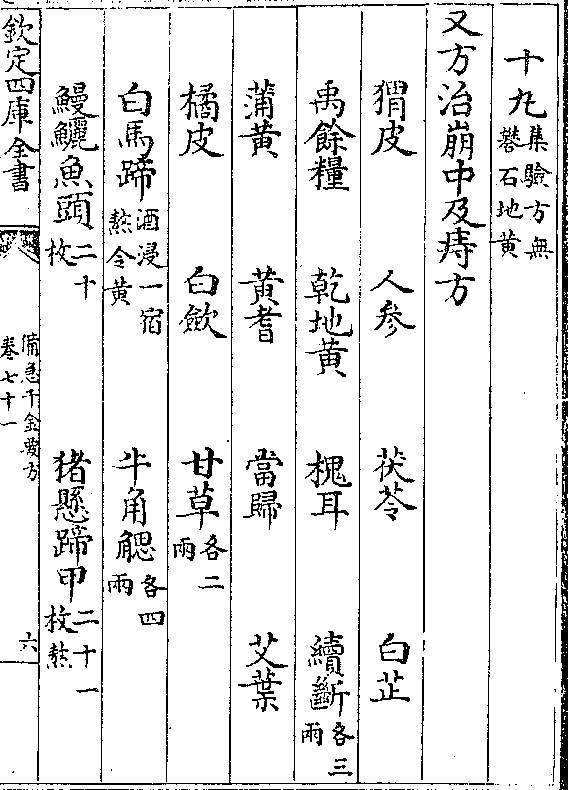 十九集驗方無礬石地黄
又方治崩中及痔方
猬皮 人參 茯苓 白芷
禹餘糧 乾地黄 槐耳 續斷各三兩
蒲黄 黄耆 當歸 艾葉
橘皮 白歛 甘草各二兩
白馬蹄酒浸一宿熬令黄 牛角䚡各四兩
鰻鱺魚頭二十枚 猪懸蹄甲二十一枚熬
欽定四庫全書
備急千金要方
卷七十一
六